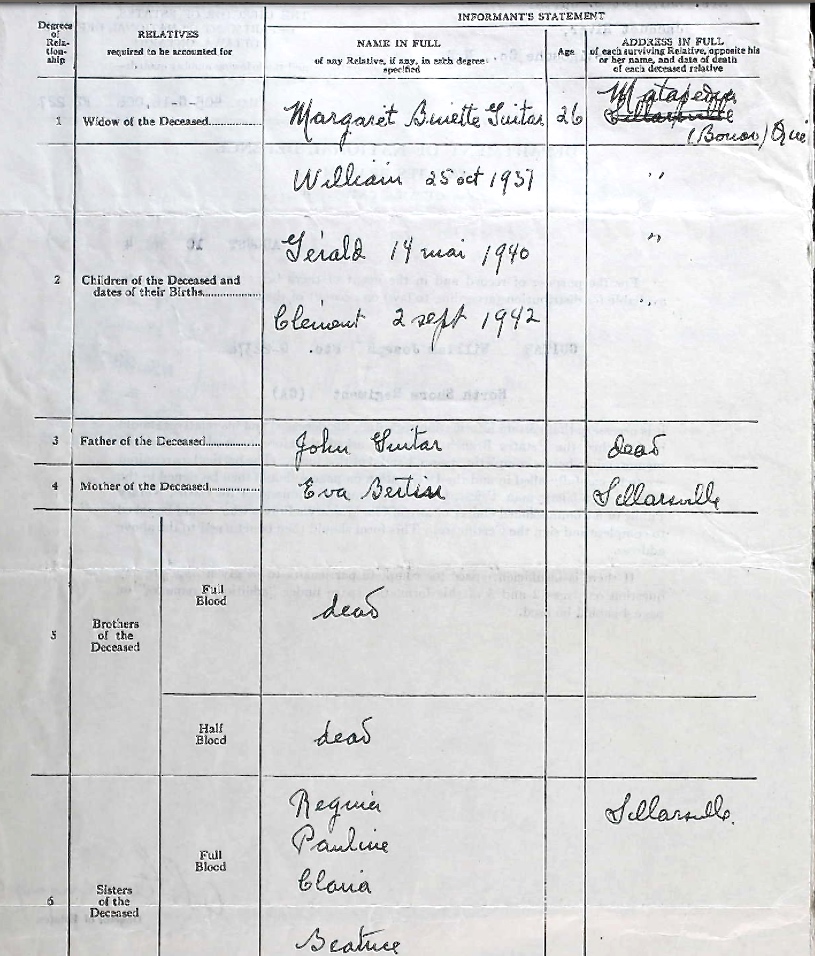 INFORMANT'S STATEMENT
Degrees of Rela-tion-ship
RELATIVES
required to be accounted for
NAME IN FULL
of any Relative, if any, in each degree specified
Age
ADDRESS IN FULL
of each surviving Relative, opposite his or her name, and date of death of each deceased relative
1 Widow of the Deceased............... Margaret Guitar 26 Matapedia
(Bonav) Que
William 25 oct 1937 "
Gérald 14 mai 1940 "
2 Children of the Deceased and dates of their Births................. "
Clement 2 sept 1942
3 Father of the Deceased............... John Guitar dead
4 Mother of the Deceased............... Eva Sillarsville
5 Brothers of the Deceased
Full Blood dead
Half Blood dead
6 Sisters of the Deceased
Full Blood
Sillarsville
Pauline
Beatrice
North Shore Regiment (CA)